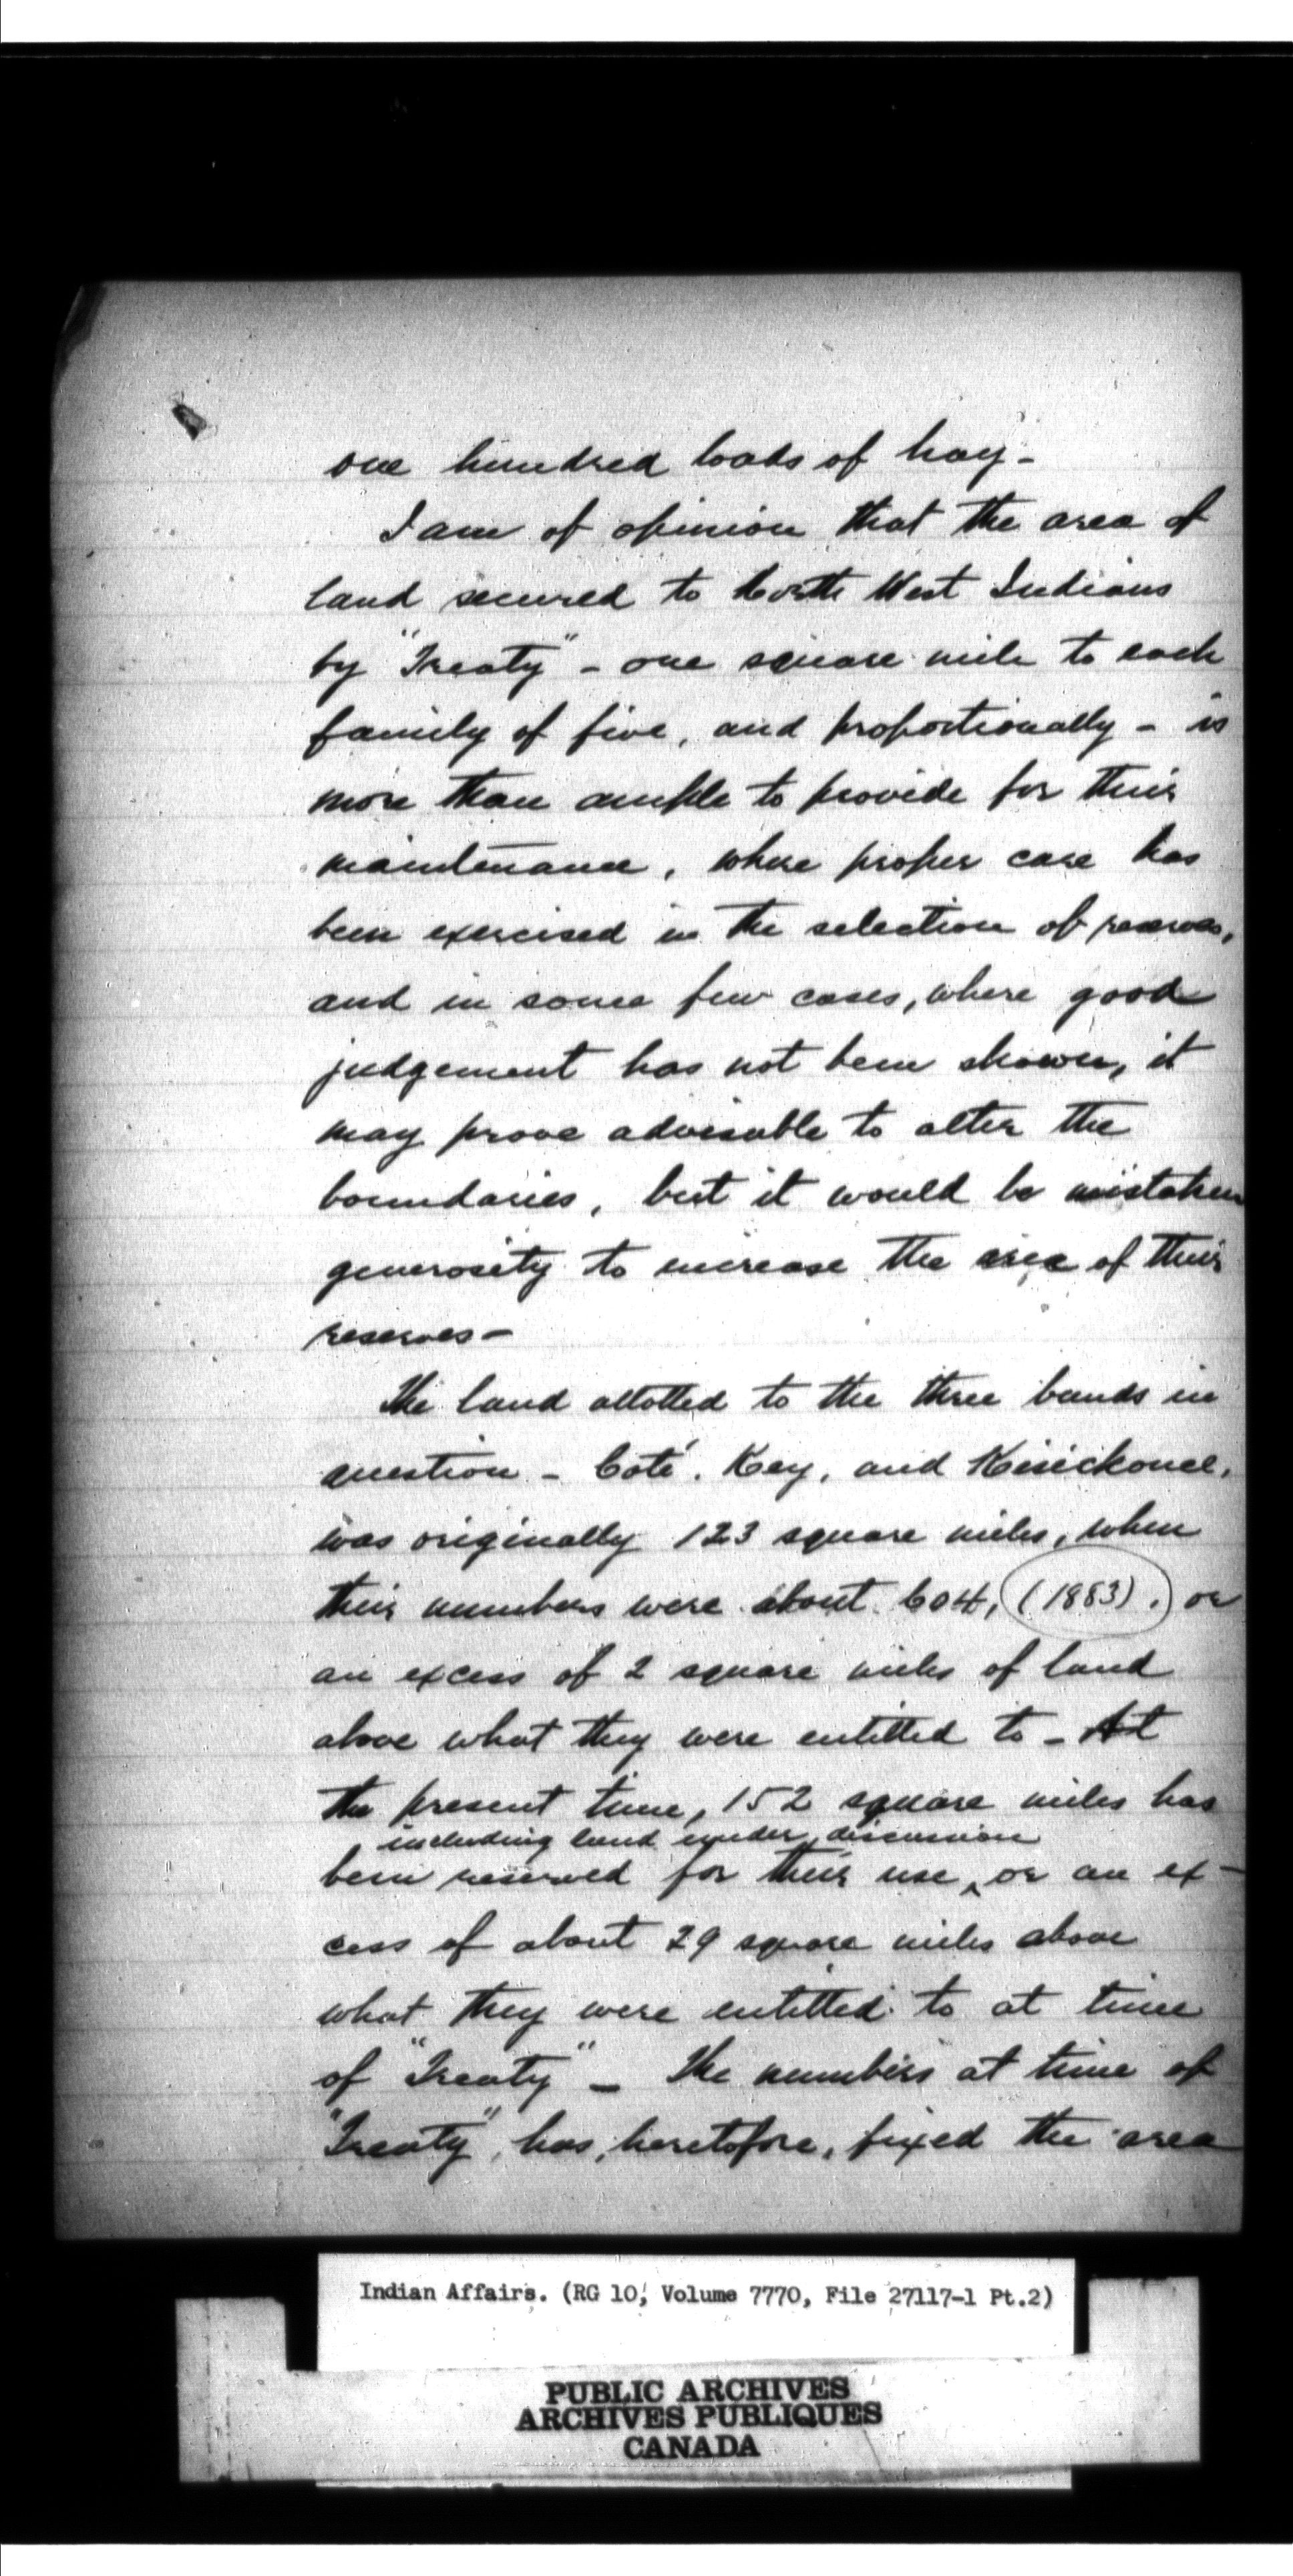 one hundred loads of hay -
I am of opinion that the area of
land secured to North West Indians
by "Treaty" - one square mile to each
family of five, and proportionally - is
more than ample to provide for their
maintenance, where proper care has
been exercised in the selection of reserves,
and in some few cases, where good
judgement has not been shown, it
may prove advisable to alter the
boundaries, but it would be mistaken
generosity to increase the area of their
reserves -
The land allotted to the three bands in
question - Coté, Key, and
was originally 123 square miles, when
their numbers were about 604, (1883), or
an excess of 2 square miles of land
above what they were entitled to - At
the present time, 152 square miles has
including land under discussion
been reserved for their use, or an ex-
cess of about 29 square miles above
what they were entitled to at time
of "Treaty" - The numbers at time of
"Treaty", has, heretofore, fixed the area
Indian Affairs. (RG 10, Volume 7770, File 27117-1 Pt.2)
PUBLIC ARCHIVES
ARCHIVES PUBLIQUES
CANADA